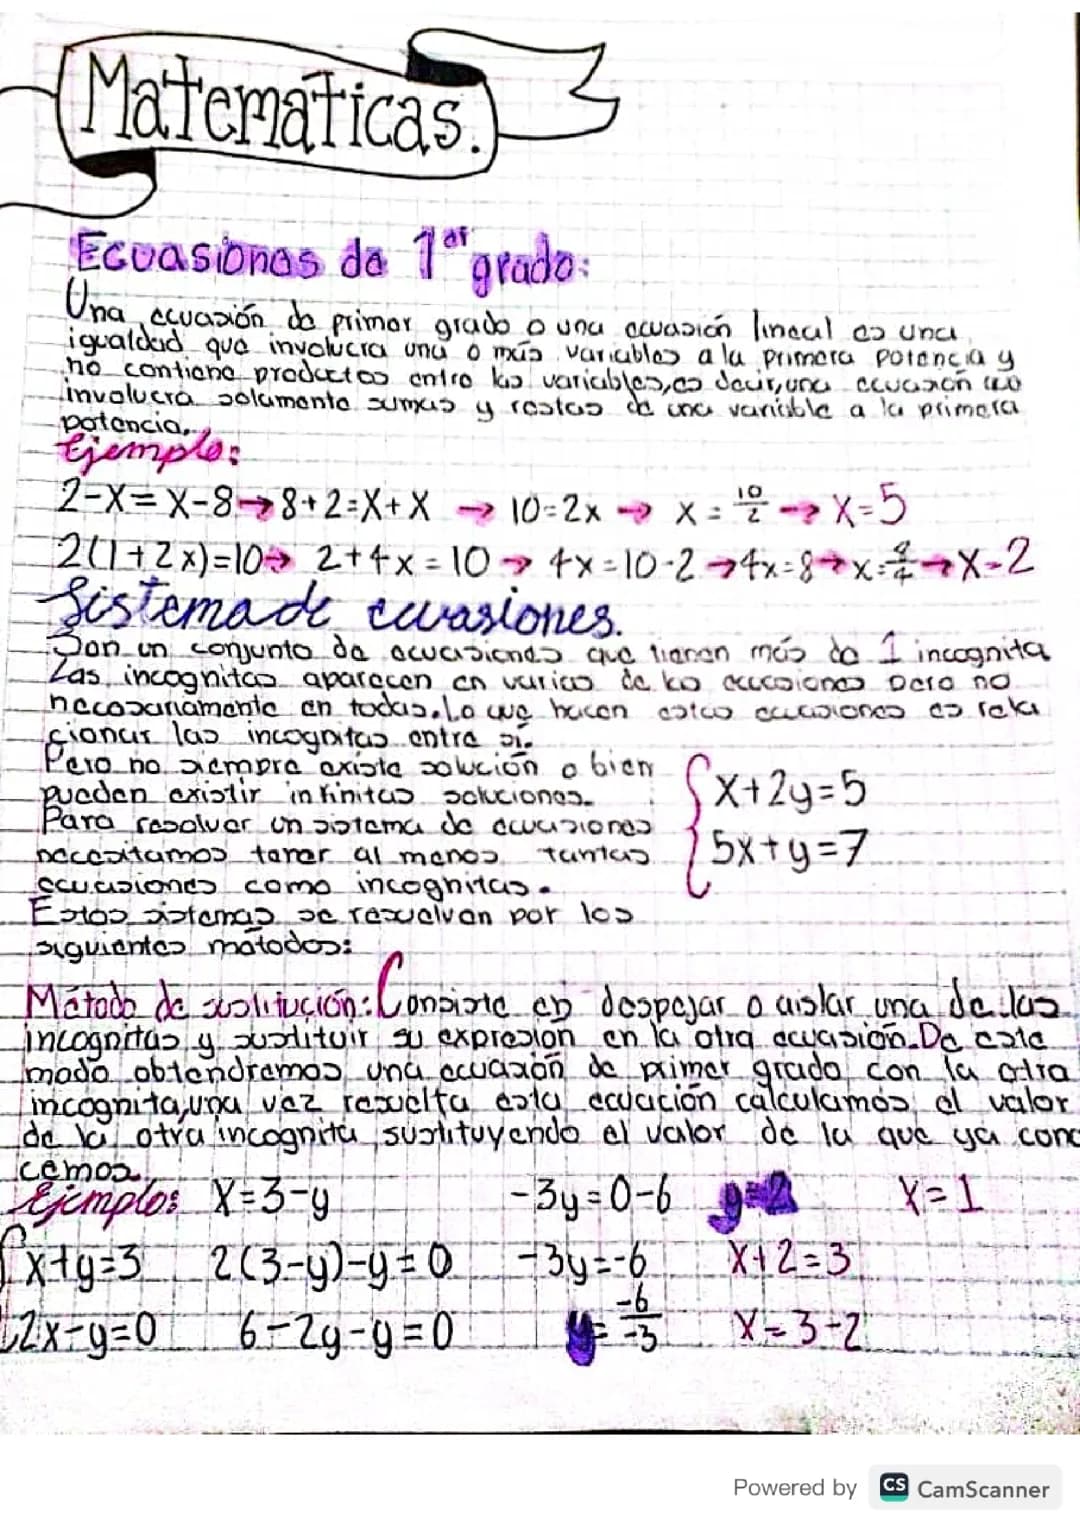 Matemáticas.
Ecuasiones de 1er grado:
Una ecuasión de primer grado o una ecuasión lineal es una
igualdad que involucra una o más variables a la primera potencia y
no contiene productos entre las variables, es decir, una ecuasión que
involucra solamente sumas y restas de una variable a la primera
potencia.
Ejemplo:
2-x=x-8→8+2=x+x → 10=2x → x=10/2 → x=5
2(1+2x)=10→ 2+4x=10→ 4x=10-2→4x=8→x=8/4→x=2
Sistema de ecuasiones.
Son un conjunto de ecuasiones que tienen más de 1 incognita
Las incognitas aparecen en varias de las ecuasiones pero no
necesariamente en todas. Lo que hacen estas ecuasiones es rela
cionar las incognitas entre sí.
Pero no siempre existe solución o bien
pueden existir infinitas soluciones.
Para resolver un sistema de ecuasiones
necesitamos tener al menos tantas
ecuasiones como incognitas.
Estos sistemas se resuelven por los
siguientes métodos:
x+2y=5
5x+y=7
Método de sustitución: Consiste en despejar o aislar una de las
incognitas y sustituir su expresión en la otra ecuasión. De este
modo obtendremos una ecuasión de primer grado con la otra
incognita, una vez resuelta esta ecuación calculamos el valor
de la otra incognita, sustituyendo el valor de la que ya cono
cemos.
Ejemplo: x=3-y -3y=0-6 y=2 x=1
x+y=3 2(3-y)-y=0 -3y=-6 x+2=3
2x-y=0 6-2y-y=0 y=-6/-3 x=3-2
Powered by CS CamScanner